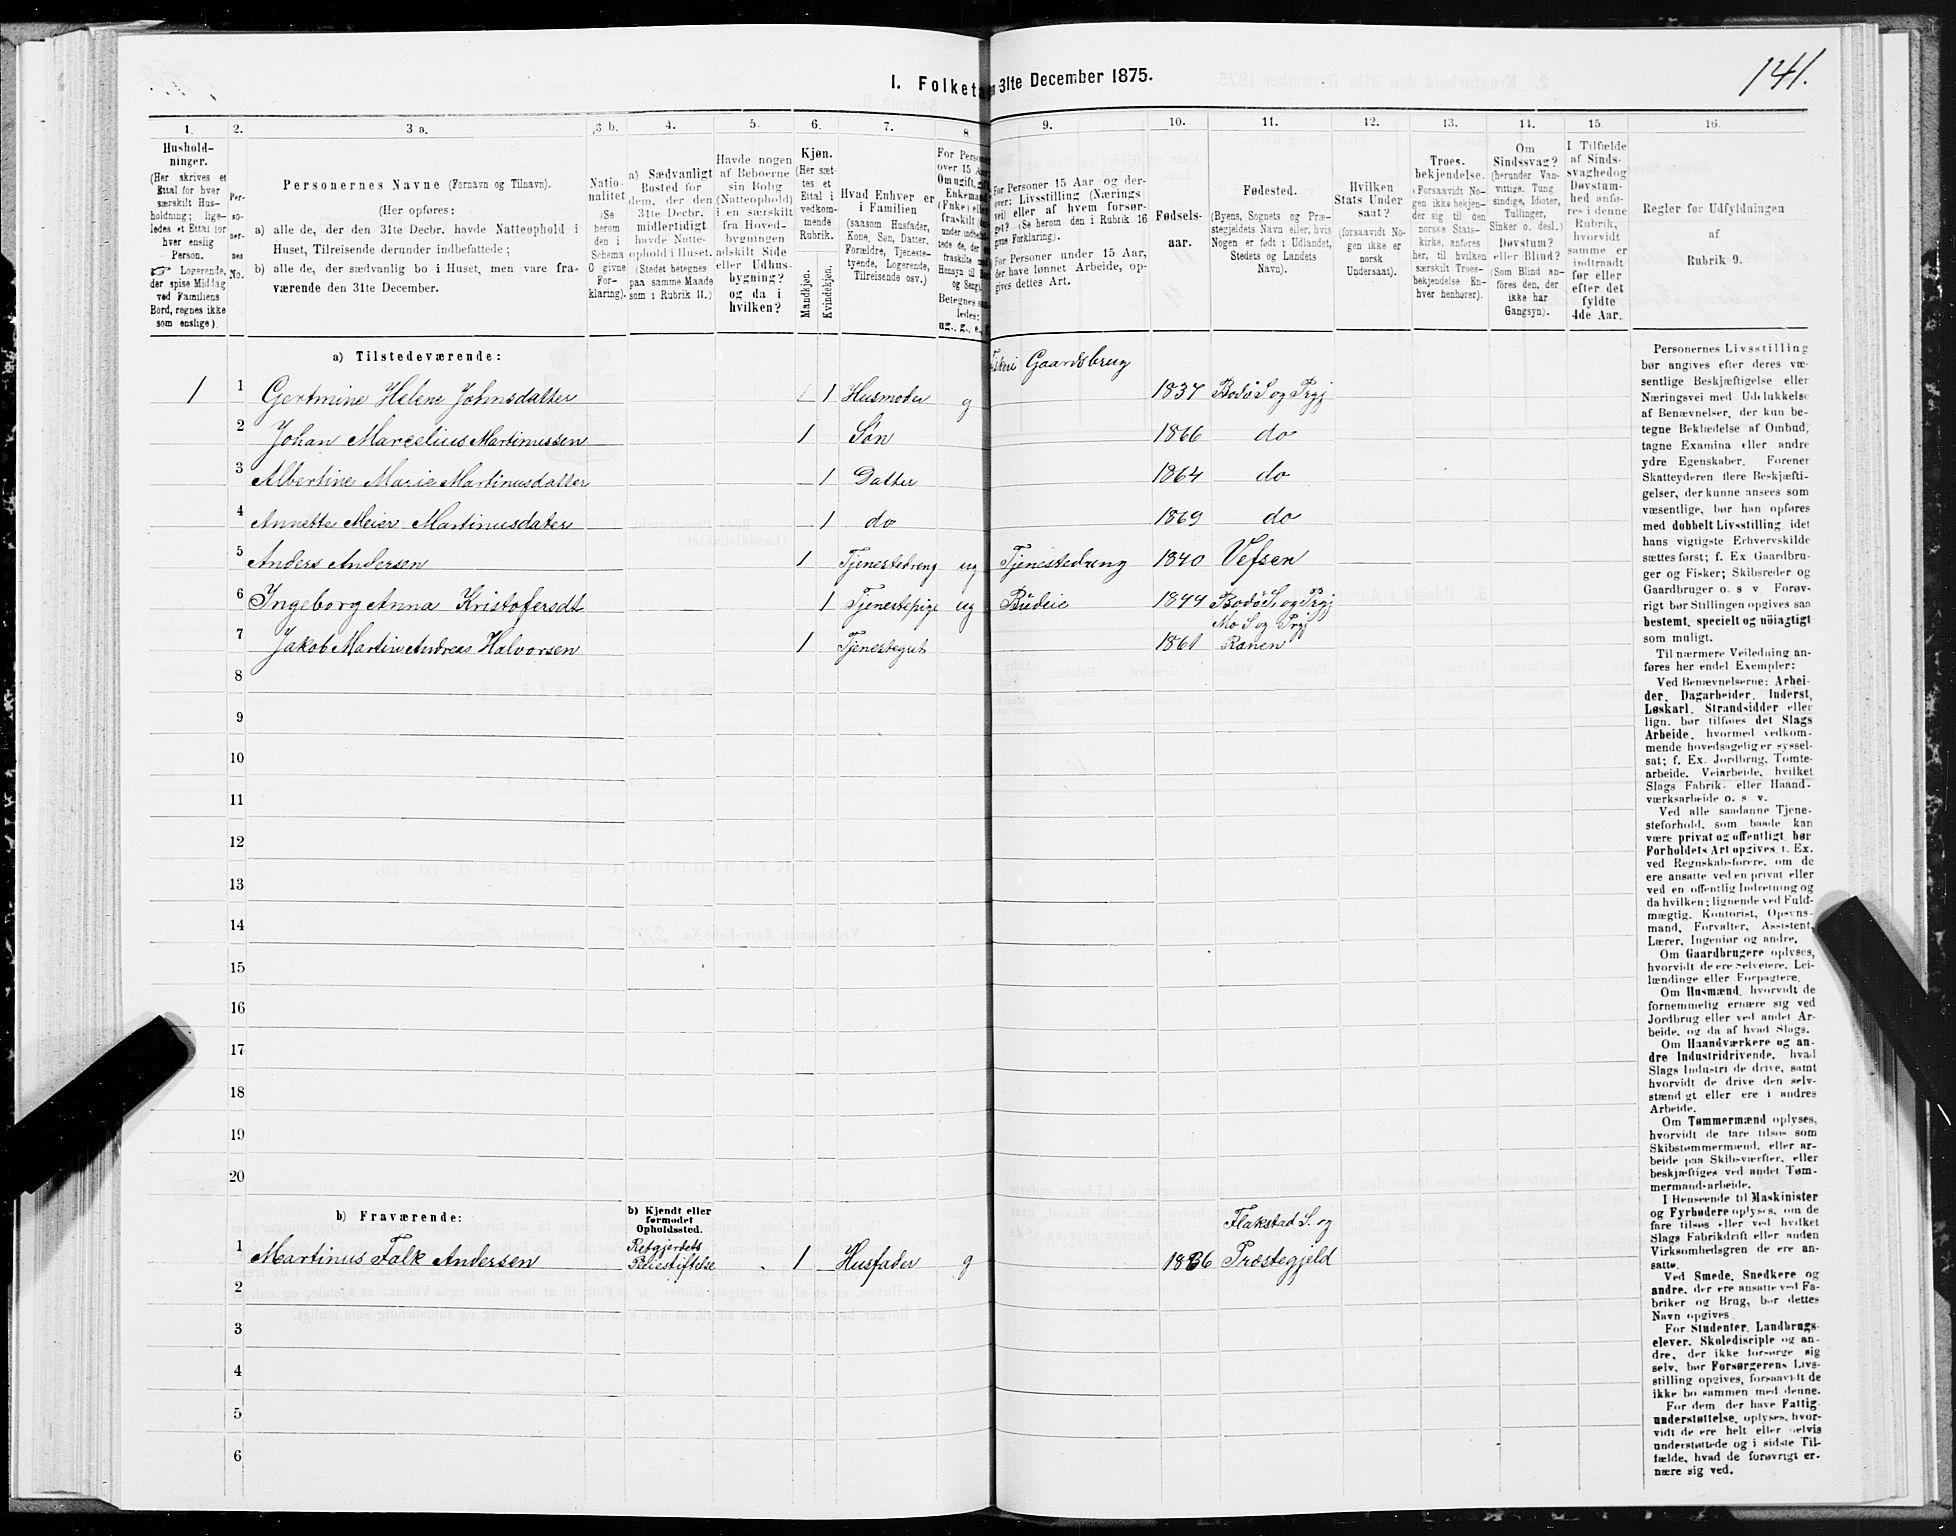 141.
I. Folketa
n 31te December 1875.
1.
2.
3 a.
3 b.
4.
5.
6.
7.
8.
9.
10.
11.
12.
13.
14.
15.
16.
Hushold-
ninger.
(Her skrives et
Ettal for hver
særskilt Hus-
holdning; lige-
ledes et Ettal for
hver enslig
Person.
☞ Logerende,
der spise Middag
ved Familiens
Bord, regnes ikke
som enslige).
Per-
so-
ner-
nes
No.
Personernes Navne (Fornavn og Tilnavn).
(Her opføres:
a) alle de, der den 31te Decbr. havde Natteophold i
Huset, Tilreisende derunder indbefattede;
b) alle de, der sædvanlig bo i Huset, men vare fra-
værende den 31te December.
Natio-
nalitet
(Se
herom
den i
Schema
C givne
Forkla-
ring).
a) Sædvanligt
Bosted for
dem, der den
31te Decbr.
midlertidigt
havde Natte-
ophold i Huset.
(Stedet betegnes
paa samme Maade
som i Rubrik 11.)
Havde nogen
af Beboerne
sin Bolig
(Natteophold)
i en særskilt
fra Hoved-
bygningen
adskilt Side
eller Udhus-
bygning?
og da i
hvilken?
Kjøn.
(Her sæt-
tes et
Ettal i
vedkom-
mende
Rubrik.
Mandkjøn.
Kvindekjøn.
Hvad Enhver er
i Familien
(saasom Husfader,
Kone, Søn, Datter,
Forældre, Tjeneste-
tyende, Logerende,
Tilreisende osv.)
For Person
over 15 Aa
Om ugift, gift
Enkemand
(Enke) eller
fraskilt
Betegnes saa
ledes:
ug., g., e.,
For Personer 15 Aar og der-
over: Livsstilling (Nærings-
vei) eller af hvem forsør-
get? (Se herom den i Rubrik 16
givne Forklaring).
For Personer under 15 Aar,
der have lønnet Arbeide, op-
gives dettes Art.
Fødsels-
aar.
Fødested.
(Byens, Sognets og Præ-
stegjeldets Navn eller, hvis
Nogen er født i Udlandet,
Stedets og Landets
Navn).
Hvilken
Stats Under
saat?
(forsaavidt No-
gen ikke er
norsk
Undersaat).
Troes-
bekjendelse.
(Forsaavidt No-
gen ikke bekjen-
der sig til den
norske Stats-
kirke, anføres
her, til hvilken
særskilt Troes-
bekjendelse En-
hver henhører).
Om
Sindssvag?
(herunder Van-
vittige, Tung
sindige, Idioter,
Tullinger,
Sinker o. desl.)
Døvstum?
eller Blind?
(Som Blind an-
føres den, der
ikke har
Gangsyn).
I Tilfælde
af Sinds-
svaghed og
Døvstum-
hed anfø-
res i denne
Rubrik,
hvorvidt
samme er
indtraadt
før eller
efter det
fyldte
4de Aar.
Regler for Udfyldningen
af
Rubrik 9.
a) Tilstedeværende:
Gaardsbrug
1 1 Gertmine Helene Johnsdatter 1 Husmoder g 1837 Bodø S og Prgj
2 Johan Marcelius Martinussen 1 Søn 1866 do
3 Albertine Marie Martinusdatter 1 Datter 1864 do
4 Annette Meier Martinusdater 1 do 1869 do
5 Anders Andersen 1 Tjenestedreng ug Tjenestedreng 1840 Vefsen
6 Ingeborg Anna Kristofersdt 1 Tjenestepige ug Budeie 1844 Bodø S. og Prgj
Mo S og Prgj
7 Jakob Martin Andreas Halvorsen 1 Tjenestegut 1861 Ranen
8
9
10
11
12
13
14
15
16
17
18
19
20
b) Fraværende:
b) Kjendt eller
formodet
Opholdssted.
Flakstad S. og
1 Martinus Falk Andersen 1 Husfader g 1836 Præstegjeld
2
3
4
5
6
Personernes Livsstilling
bør angives efter deres væ-
sentlige Beskjæftigelse eller
Næringsvei med Udelukkelse
af Benævnelser, der kun be-
tegne Beklædelse af Ombud,
tagne Examina eller andre
ydre Egenskaber. Forener
Skatteyderen flere Beskjæfti-
gelser, der kunne ansees som
væsentlige, bør han opføres
med dobbelt Livsstilling, idet
hans vigtigste Erhvervskilde
sættes først; f. Ex Gaardbru-
ger og Fisker; Skibsreder og
Gaardbruger o. s v Forøv-
rigt bør Stillingen opgives saa
bestemt, specielt og nöiagtigt
som muligt.
Til nærmere Veiledning an-
føres her endel Exempler:
Ved Benævnelserne: Arbei-
der, Dagarbeider, Inderst,
Løskarl, Strandsidder eller
lign. bør tilføies det Slags
Arbeide, hvormed vedkom-
mende hovedsagelig er syssel-
sat; f. Ex. Jordbrug, Tomte-
arbeide, Veiarbeide, hvilket
Slags Fabrik- eller Haand-
værksarbeide o. s v.
Ved alle saadanne Tjene-
steforhold, som baade kan
være privat og offentligt, bør
Forholdets Art opgives, f. Ex.
ved Regnskabsførere, om de
ere ansatte ved en privat eller
ved en offentlig Indretning og
da hvilken; lignende ved Fuld-
mægtig, Kontorist, Opsyns-
mand, Forvalter, Assistent,
Lærer, Ingeniør og andre.
Om Gaardbrugere oplyses,
hvorvidt de ere Selveiere, Lei-
lændinge eller Forpagtere.
Om Husmænd, hvorvidt de
fornemmelig ernære sig ved
Jordbrug eller ved andet Ar-
beide, og da af hvad Slags.
Om Haandværkere og an-
dre Industridrivende, hvad
Slags Industri de drive, samt
hvorvidt de drive den selv-
stændigt eller ere i andres
Arbeide.
Om Tømmermænd oplyses,
hvorvidt de fare tilsøs som
Skibstømmermænd, eller ar-
beide paa Skibsværfter, eller
beskjæftiges ved andet Tøm-
mermand-arbeide.
I Henseende til Maskinister
og Fyrbødere oplyses, om de
fare tilsøs eller ved hvilket
Slags Fabrikdrift eller anden
Virksomhedsgren de ere an-
satte.
Ved Smede, Snedkere og
andre, der ere ansatte ved Fa-
briker og Brug, bør dettes
Navn opgives.
For Studenter, Landbrugs-
elever, Skoledisciple og an-
dre, der ikke forsørge sig
selv, bør Forsørgerens Livs-
stilling opgives, forsaavidt de
ikke bo sammen med denne.
For dem, der have Fattig-
understøttelse, oplyses, hvor-
vidt de ere helt eller delvis
understøttede og i sidste Til-
fælde, hvad de forøvrigt er-
nære sig ved.